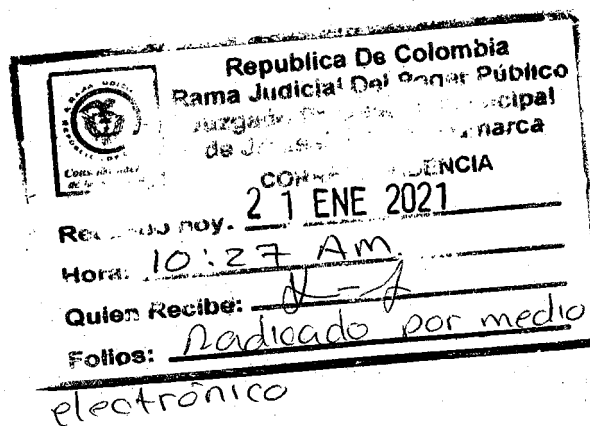 Republica De Colombia
Rama Judicial Del Poder Público
Juzgado
de
CORRESPONDENCIA
Recibido hoy. 21 ENE 2021
Hora: 10:27 Am.
Quien Recibe:
Folios: Radicado por medio
electrónico